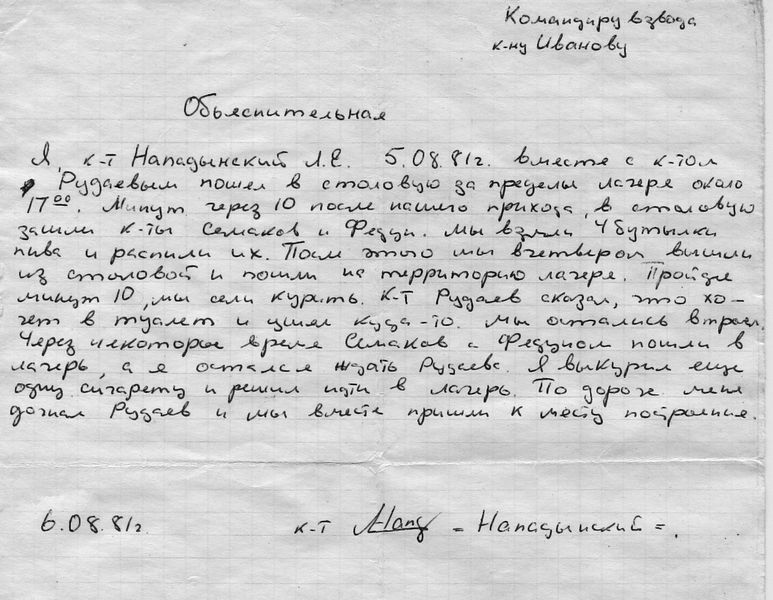 Командиру взвода
к-ну Иванову
Объяснительная
Я, к-т Нападынский Л.Е. 5.08.81г. вместе с к-том
Рудаевым пошел в столовую за пределы лагеря около
17⁰⁰. Минут через 10 после нашего прихода, в столовую
зашли к-ты Семаков и Федун. Мы взяли 4 бутылки
пива и распили их. После этого мы вчетвером вышли
из столовой и пошли на территорию лагеря. Пройдя
минут 10, мы сели курить. К-т Рудаев сказал, что хо-
чет в туалет и ушел куда-то. Мы остались втроем.
Через некоторое время Семаков с Федуном пошли в
лагерь, а я остался ждать Рудаева. Я выкурил еще
одну сигарету и решил идти в лагерь. По дороге меня
догнал Рудаев и мы вместе пришли к месту построения.
6.08.81г. к-т = Нападынский =.